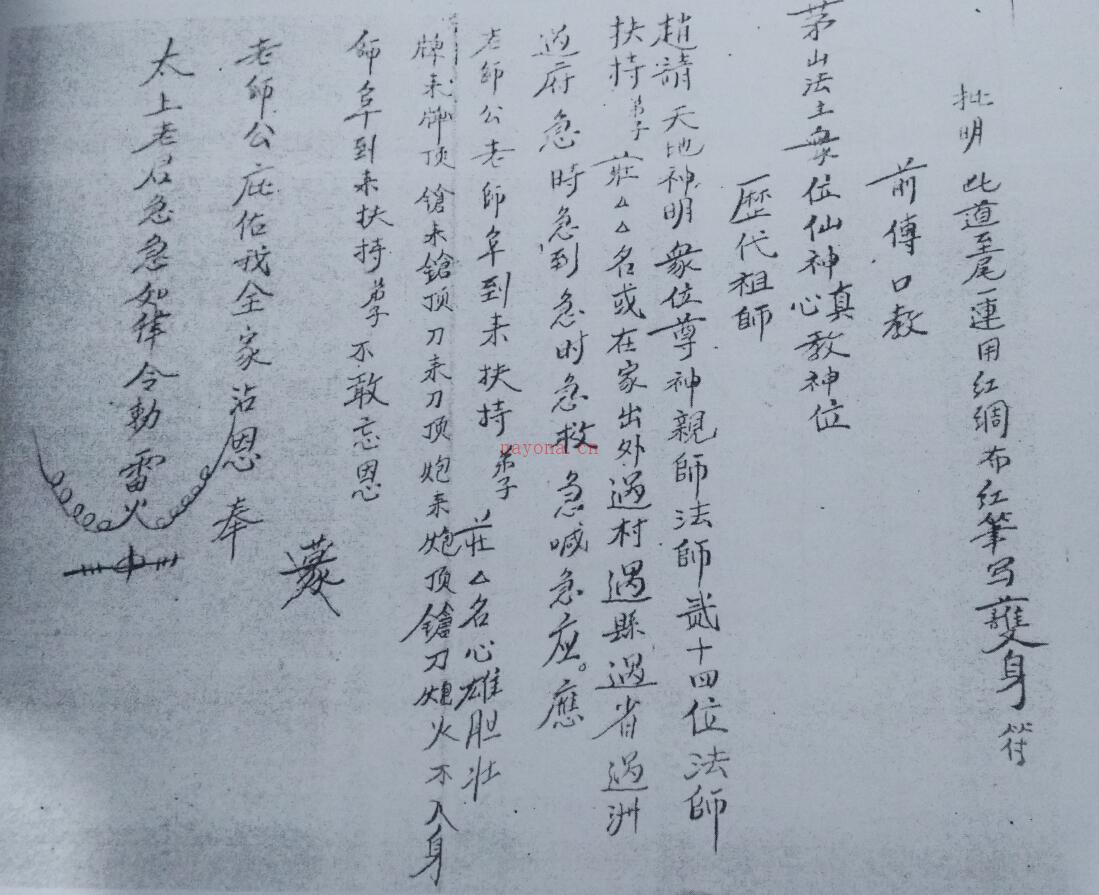 批明 此道至尾一連用红绸布红筆写護身符
前傳口教
茅山法主衆位仙神心真教神位
歷代祖師
趙請天地神明衆位尊神親師法師贰十四位法師
扶持弟子莊△△名或在家出外過村過縣過省過洲
過府急時急到急时急救急喊急应。應
老師公老師阜到来扶持弟子莊△名心雄胆壮
牌来牌顶鎗来鎗顶刀来刀顶炮来炮顶鎗刀炮火不入身
師阜到来扶持弟子不敢忘恩
蒙
老師公庇佑我全家沾恩奉
太上老君急急如律令勅雷火
nayona.cn